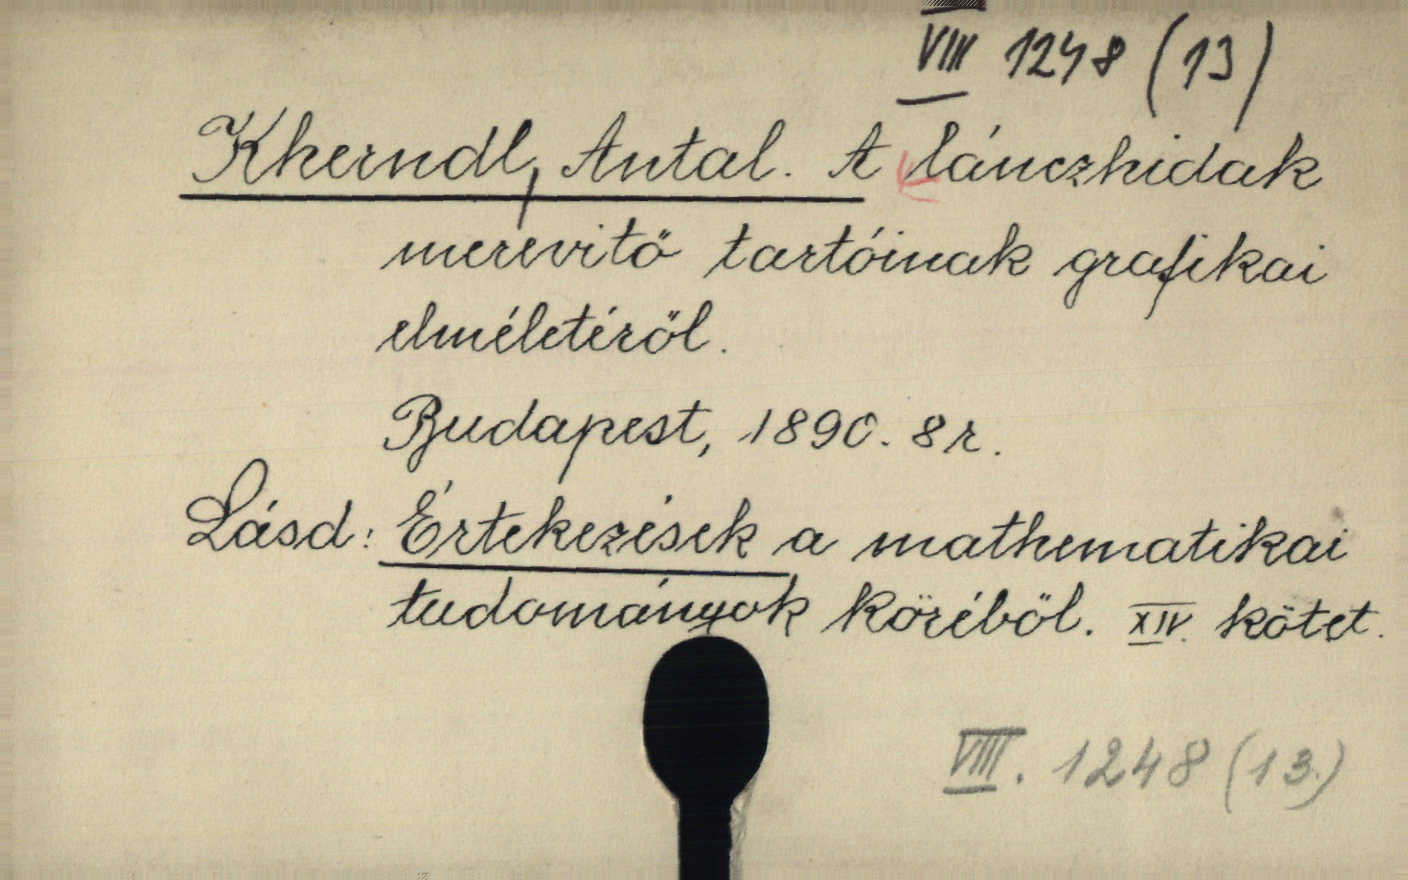 VIII 1248 (13)
Kherndl, Antal. A lánczhidak
merevitő tartóinak grafikai
elméletéről.
Budapest, 1890. 8r.
Lásd: Értekezések a mathematikai
tudományok köréből. XIV. kötet.
VIII. 1248 (13.)